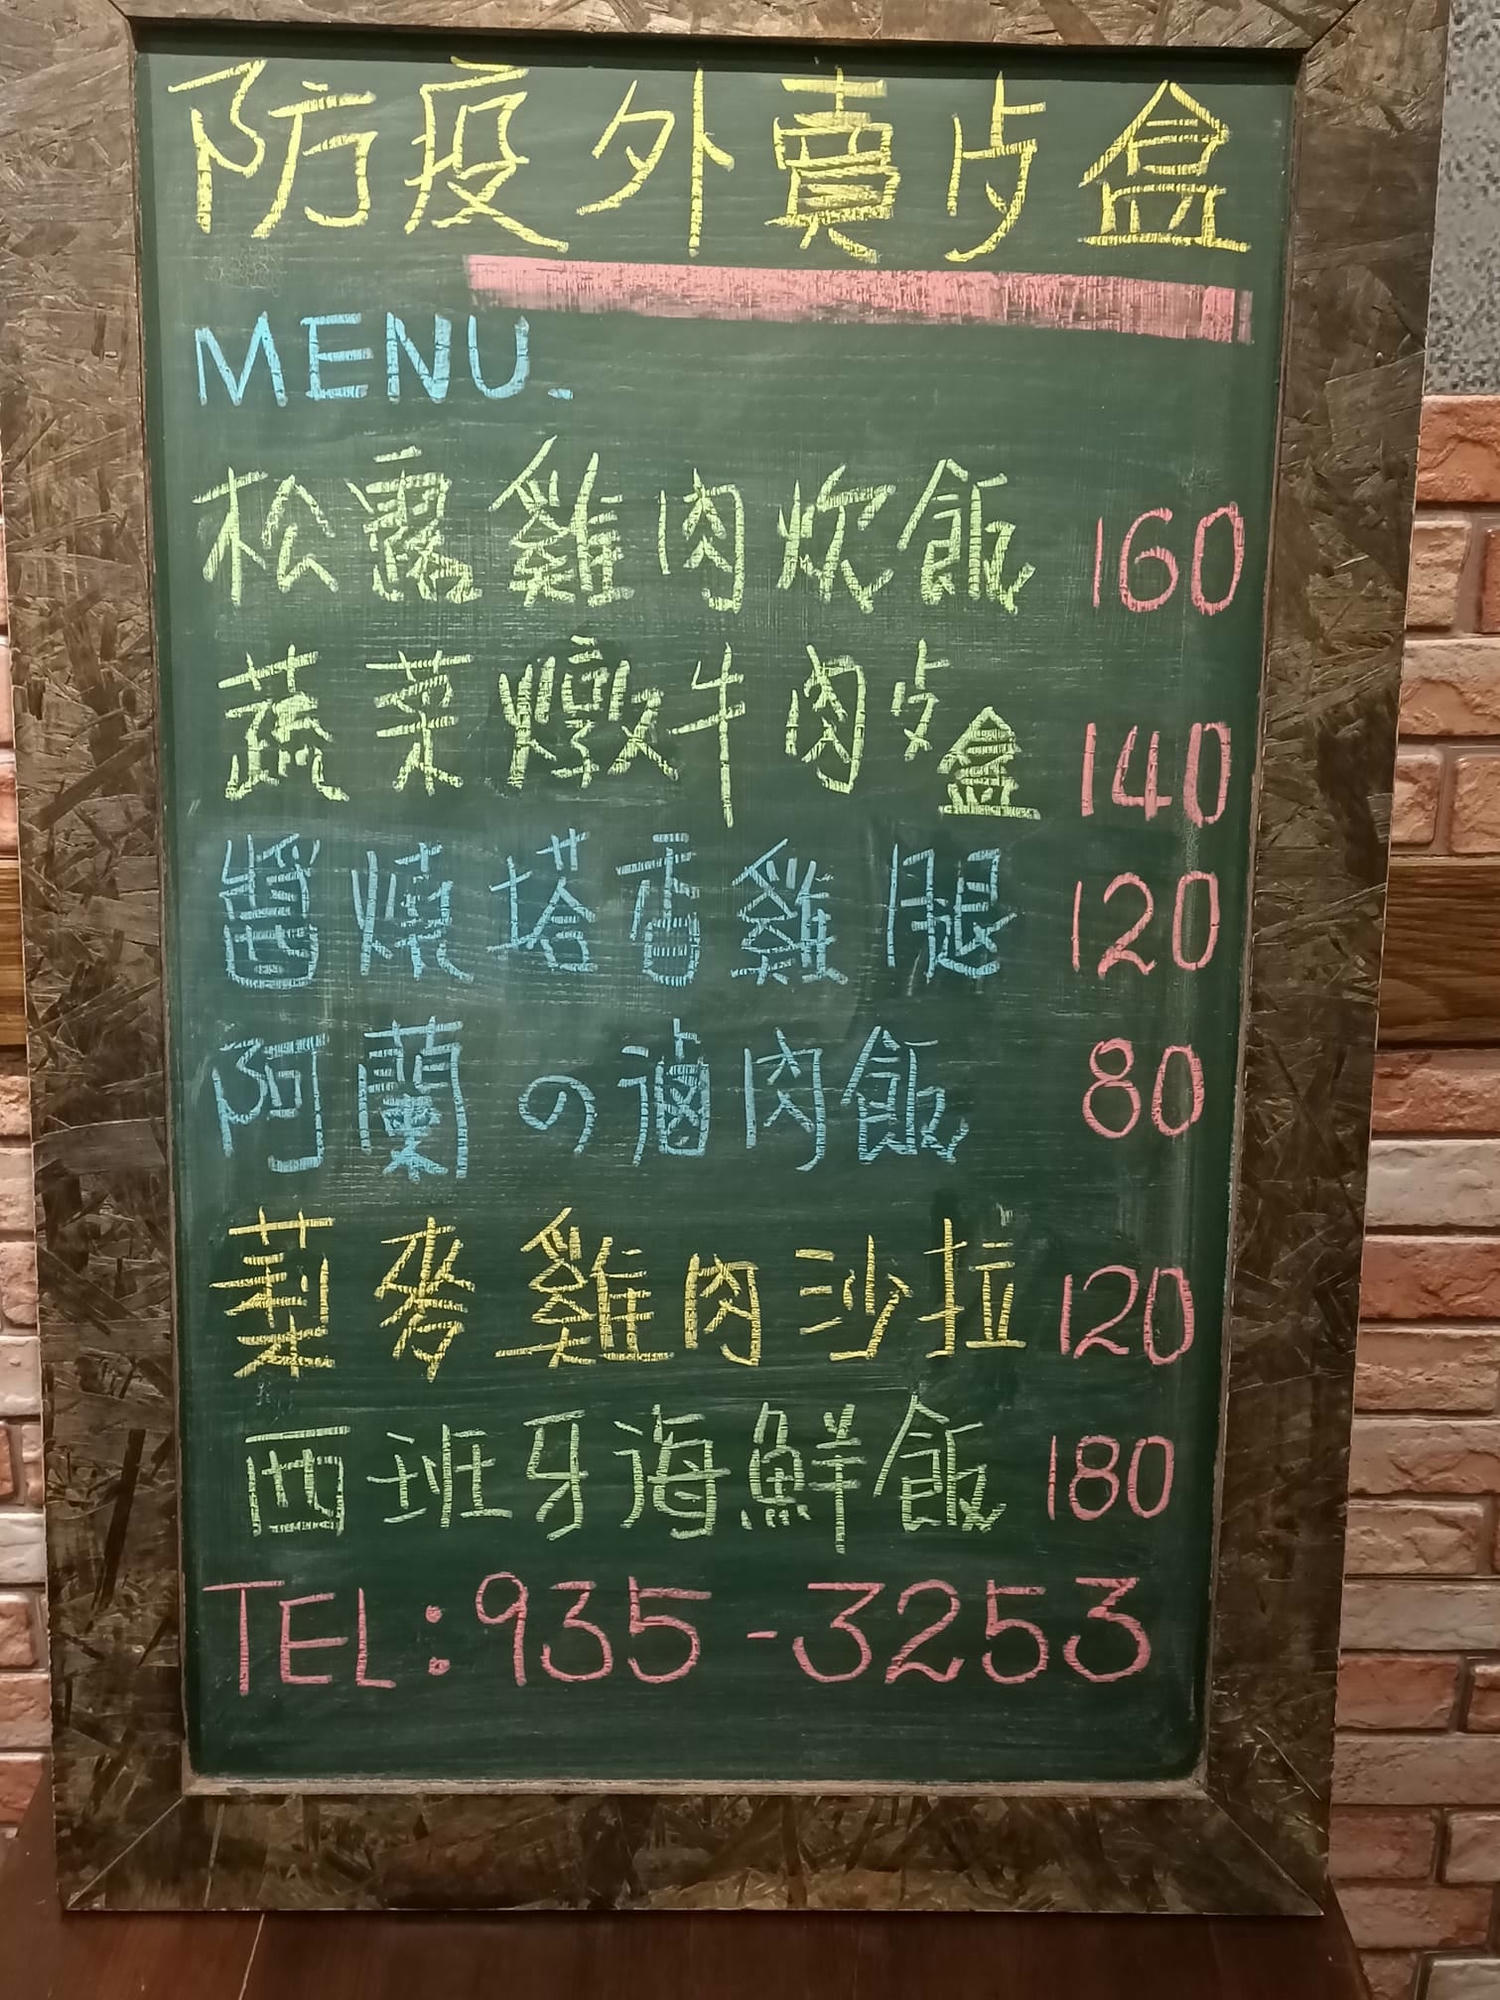 防疫外賣歺盒
MENU.
松露雞肉炊飯 160
蔬菜燉牛肉歺盒 140
醬燒塔香雞腿 120
阿蘭の滷肉飯 80
藜麥雞肉沙拉 120
西班牙海鮮飯 180
TEL:935-3253